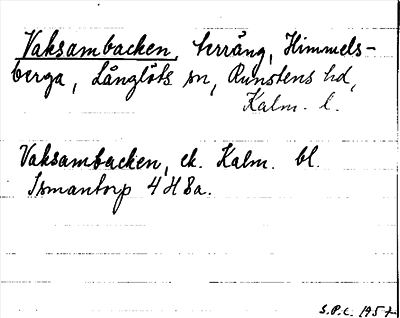 Vaksambacken, terräng, Himmels-
berga, Långlöts sn, Runstens hd,
Kalm. l.
Vaksambacken, ek. Kalm. bl.
Ismantorp 4 H 8a.
S.P.L. 1957